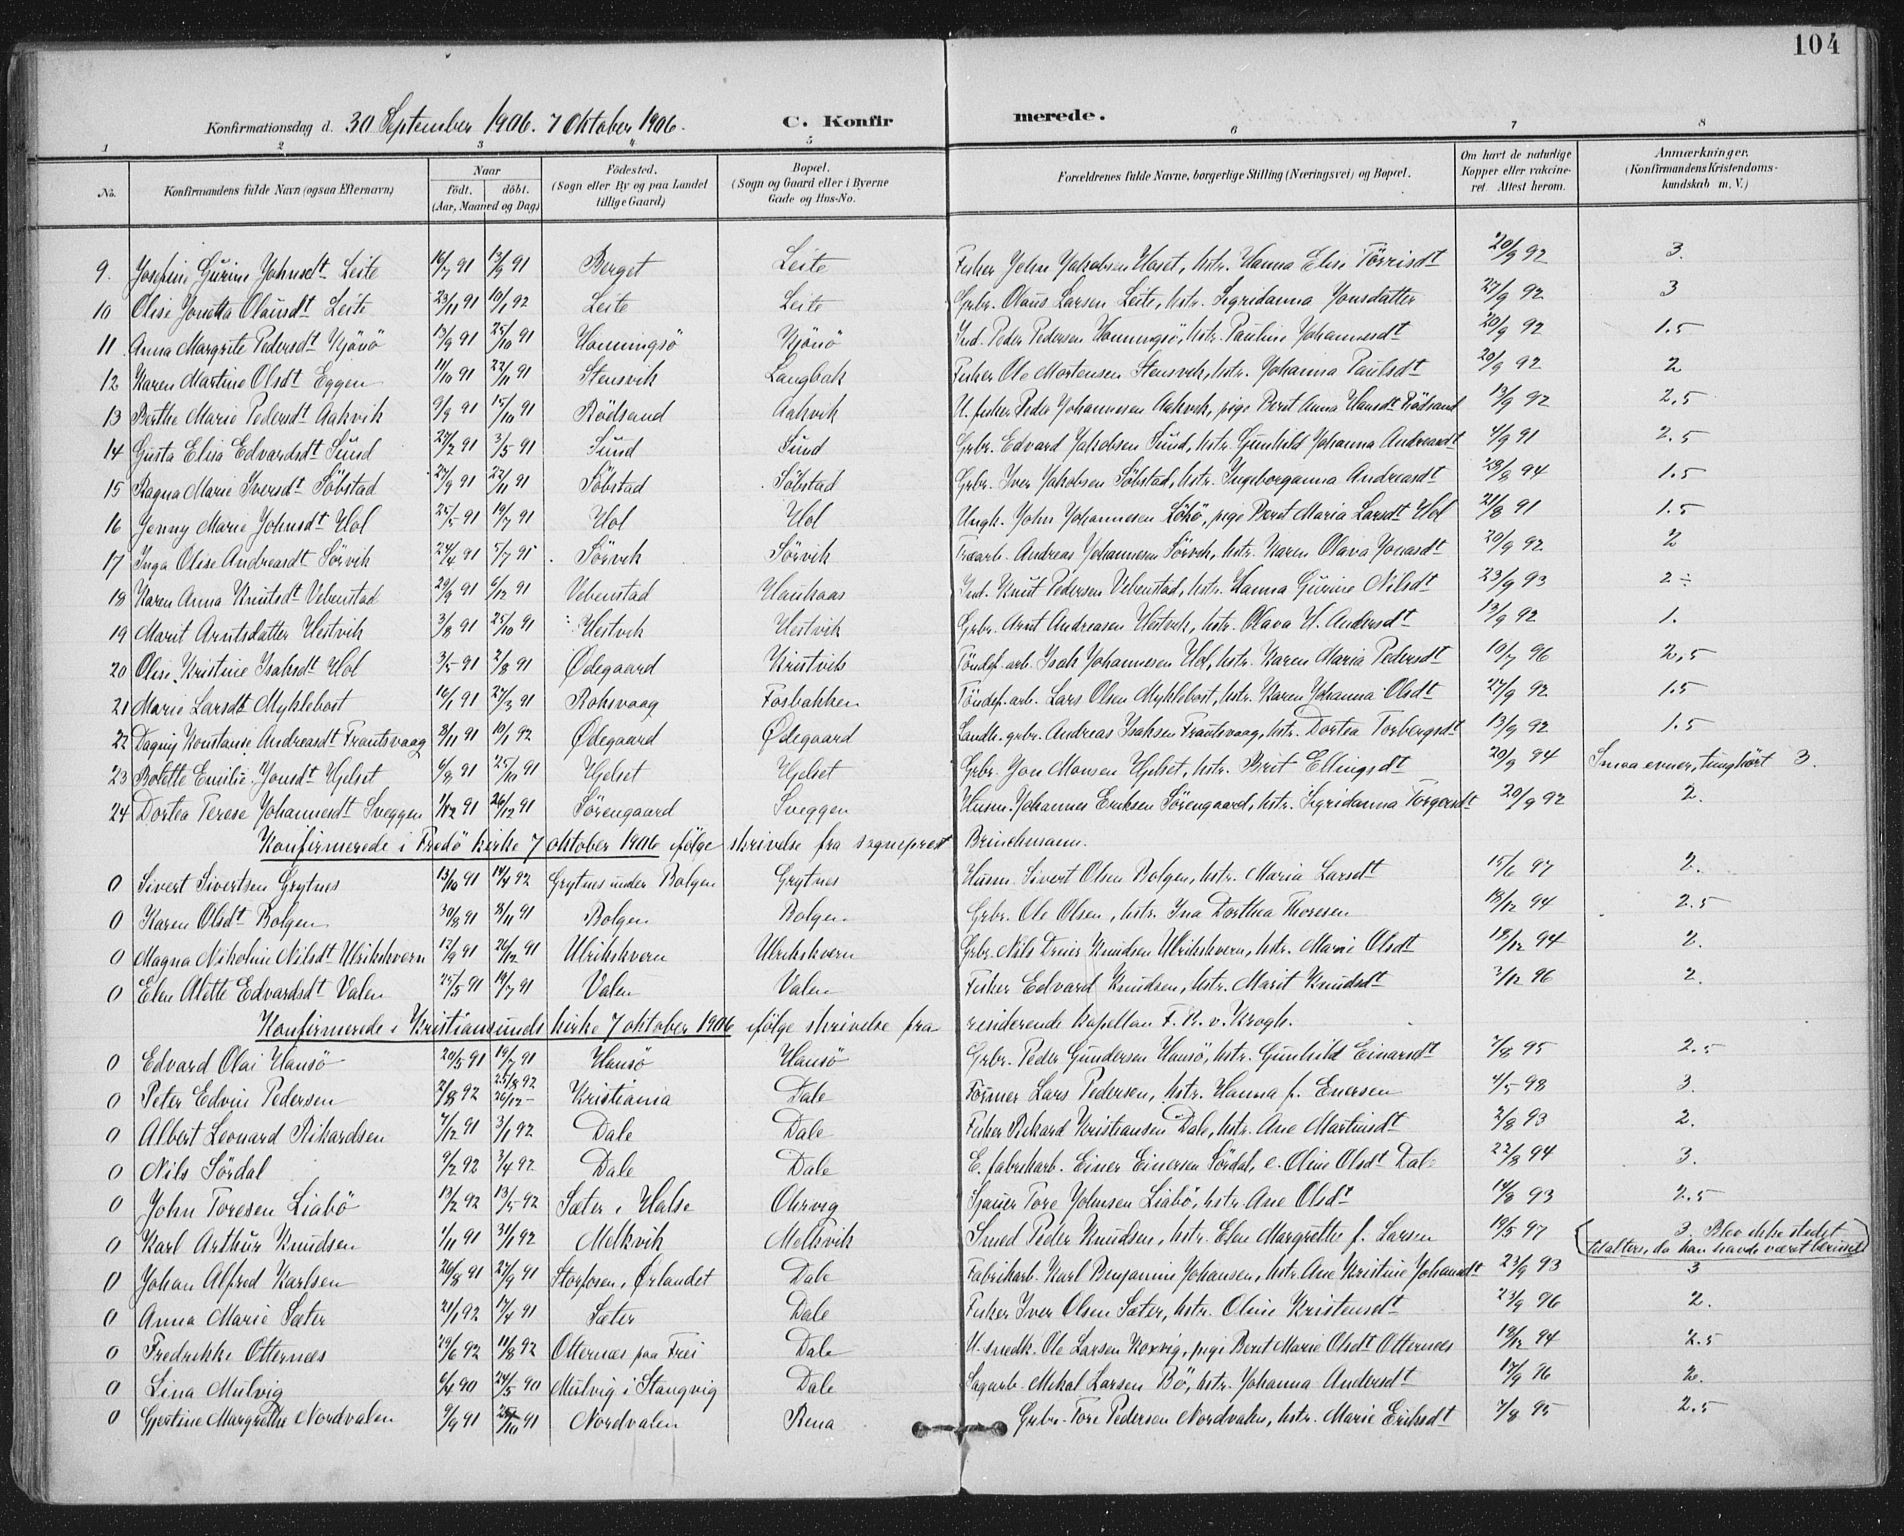 104
Konfirmationsdag d. 30 September 1906. 7 Oktober 1906. C. Konfirmerede.
1 2 3 4 5 6 7 8
No. Konfirmandens fulde Navn (ogsaa Efternavn) Naar födt. döbt. (Aar, Maaned og Dag) Födested. (Sogn eller By og paa Landet tillige Gaard) Bopæl. (Sogn og Gaard eller i Byerne Gade og Hus-No. Forældrenes fulde Navne, borgerlige Stilling (Næringsvei) og Bopæl. Om havt de naturlige Kopper eller vaccineret. Attest herom. Anmærkninger. (Konfirmandens Kristendomskundskab m. V.)
9. Josefine Gurine Johnsdt Leite 16/7 91 13/9 91 Berget Leite Fisker John Jakobsen Uoset, hstr. Hanna Elise Törrisdt 20/9 92 3.
10 Olise Jonetta Olausdt Leite 23/11 91 10/1 92 Leite Leite Grbr. Olaus Larsen Leite, hstr. Sigridanna Jonsdatter 27/9 92 3
11 Anna Margrete Pedersdt Kjönö 13/9 91 25/10 91 Honningsö Kjönö Ind. Peder Pedersen Honningsö, hstr. Pauline Johannesdt 20/9 92 1.5
12 Karen Martine Olsdt Eggen 11/10 91 22/11 91 Stensvik Langbak Fisker Ole Mortensen Stensvik, hstr. Johanna Paulsdt 20/9 92 2
13 Berthe Marie Pedersdt Aakvik 9/9 91 15/10 91 Rödsand Aakvik U. fisker Peder Johannesen Aakvik, pige Berit Anna Hansdt Rödsand 13/9 92 2.5
14 Gusta Elisa Edvardsdt Sund 27/2 91 3/5 91 Sund Sund Grbr. Edvard Jakobsen Sund, hstr. Gunhild Johanna Andreasdt 4/9 91 2.5
15 Ragna Marie Iversdt Söbstad 27/9 91 22/11 91 Söbstad Söbstad Grbr. Iver Jakobsen Söbstad, hstr. Ingeborganna Andreasdt 28/8 94 1.5
16 Jenny Marie Johnsdt Hol 25/5 91 19/7 91 Hol Hol Ungk. John Johannesen Löhö, pige Berit Maria Larsdt Hol 21/8 91 1.5
17 Inga Olise Andreasdt Sörvik 24/4 91 5/7 91 Sörvik Sörvik Træarb. Andreas Johannesen Sörvik, hstr. Karen Olava Jonasdt 20/9 92 2
18 Karen Anna Knutsdt Vebenstad 29/9 91 6/12 91 Vebenstad Haukaas Ind. Knut Pedersen Vebenstad, hstr. Hanna Gurine Nilsdt 23/9 93 2 ÷
19 Marit Arntsdatter Hestvik 3/8 91 25/10 91 Hestvik Hestvik Grbr. Arnt Andreasen Hestvik, hstr. Olava H. Andersdt 13/9 92 1.
20 Olise Kristine Isaksdt Hol 3/5 91 2/8 91 Ødegaard Kristvik Töndef. arb. Isak Johannesen Hol, hstr. Karen Maria Pedersdt 10/7 96 2,5
21 Marie Larsdt Myklebost 16/1 91 27/3 91 Roksvaag Fosbakken Töndef. arb. Lars Olsen Myklebost, hstr. Karen Johanna Olsdt 27/9 92 1.5
22 Dagny Konstanse Andreasdt Frautsvaag 8/11 91 10/1 92 Ødegaard Ødegaard Landh. grbr. Andreas Isaksen Frautsvaag, hstr. Dortea Torbergsdt 13/9 92 1.5
23 Bolette Emilie Jonsdt Hjelset 6/8 91 25/10 91 Hjelset Hjelset Grbr. Jon Monsen Hjelset, hstr. Brit Ellingsdt 20/9 94 Smaa evner, tunghört 3.
24 Dortea Terese Johannesdt Sveggen 1/12 91 26/12 91 Sörengaard Sveggen Husm. Johannes Eriksen Sörengaard, hstr. Sigridanna Torgersdt 20/9 92 2.
Konfirmerede i Fredö kirke 7 oktober 1906 ifölge skrivelse fra sogneprest Brinchmann.
0 Sivert Sivertsen Grytnes 13/10 91 14/4 92 Grytnes under Bolgen Grytnes Husm. Sivert Olsen Bolgen, hstr. Maria Larsdt 15/6 97 2.
0 Karen Olsdt Bolgen 30/8 91 8/11 91 Bolgen Bolgen Grbr. Ole Olsen, hstr. Ina Dorthea Thoresen 18/12 94 2.5
0 Magna Nikoline Nilsdt Ulrikskvern 12/9 91 26/12 91 Ulrikskvern Ulrikskvern Grbr. Nils Dreier Knudsen Ulrikskvern, hstr. Marie Olsdt 18/12 94 2.
0 Elen Alette Edvardsdt Valen 25/5 91 19/7 91 Valen Valen Fisker Edvard Knudsen, hstr. Marit Knudsdt 3/12 96 2.
Konfirmerede i Kristiansunds kirke 7 oktober 1906 ifölge skrivelse fra residerende kapellan F. R. v. Krogh.
0 Edvard Olai Hansö 20/5 91 19/7 91 Hansö Hansö Grbr. Peder Gundersen Hansö, hstr. Gunhild Einarsdt 7/8 95 2.5
0 Peter Edvin Pedersen 2/8 92 25/8 92 26/12 — Kristiania Dale Former Lars Pedersen, hstr. Hanna f. Enersen 4/5 98 3.
0 Albert Leonard Rikardsen 7/12 91 3/1 92 Dale Dale Fisker Rickard Kristiansen Dale, hstr. Ane Martinsdt 2/8 93 2.
0 Nils Sördal 9/2 92 3/4 92 Dale Dale E. fabrikarb. Einer Einersen Sördal, e. Oline Olsdt Dale 22/8 94 3.
0 John Toresen Liabö 13/2 92 13/5 92 Sæter i Halse Ohrvig Sjauer Tore Johnsen Liabö, hstr. Ane Olsdt 14/8 93 2.5
0 Karl Arthur Knudsen 1/11 91 31/1 92 Melkvik Melkvik Smed Peder Knudsen, hstr. Elen Margrethe f. Larsen 19/5 97 3. Blev ikke stedet tilalters, da han havde været beruset
0 Johan Alfred Karlsen 26/8 91 27/9 91 Storfosen, Ørlandet Dale Fabrikarb. Karl Benjamin Johansen, hstr. Ane Kristine Johansdt 23/9 93 3
0 Anna Marie Sæter 21/1 92 17/4 91 Sæter Dale Fisker Iver Olsen Sæter, hstr. Oline Kristensdt 23/9 96 2.
0 Fredrikke Otternes 29/6 92 14/8 92 Otternes paa Frei Dale U. snedk. Ole Larsen Korsvig, pige Berit Marie Olsdt Otternes 18/12 94 2.5
0 Lina Mulvig 6/4 90 24/5 90 Mulvig i Stangvig Dale Sagarb. Mikal Larsen Bö, hstr. Johanna Andersdt 17/9 96 2.
0 Gjertine Margrethe Nordvalen 9/9 91 25/10 91 Nordvalen Rena Grbr. Tore Pedersen Nordvalen, hstr. Marie Eriksdt 7/8 95 2.5